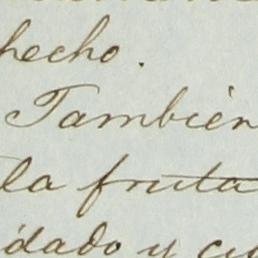 hecho.
También
la fruta
idado y cu